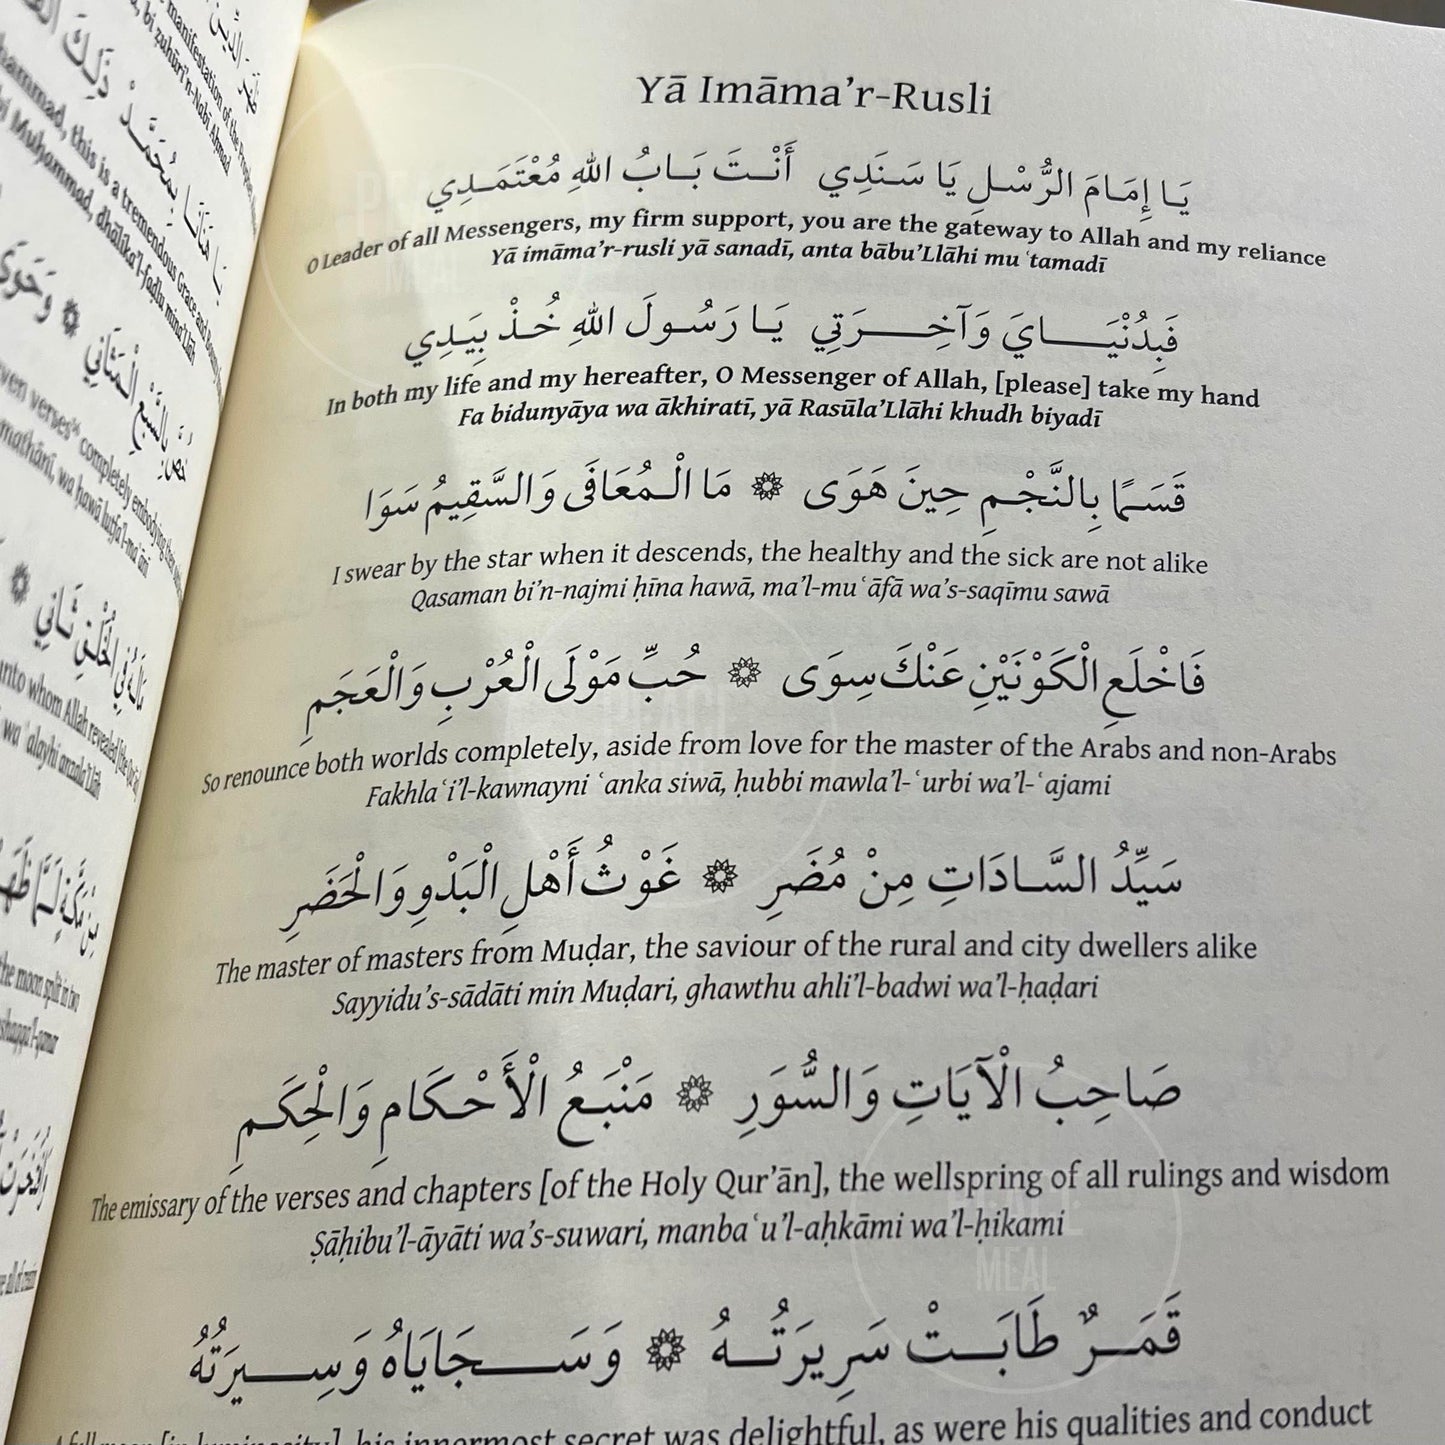 Yā Imāma’r-Rusli
يَا إِمَامَ الرُّسْلِ يَا سَنَدِي أَنْتَ بَابُ اللهِ مُعْتَمَدِي
O Leader of all Messengers, my firm support, you are the gateway to Allah and my reliance
Yā imāma’r-rusli yā sanadī, anta bābu’Llāhi mu ʿtamadī
فَبِدُنْيَايَ وَآخِرَتِي يَا رَسُولَ اللهِ خُذْ بِيَدِي
In both my life and my hereafter, O Messenger of Allah, [please] take my hand
Fa bidunyāya wa ākhiratī, yā Rasūla’Llāhi khudh biyadī
قَسَمًا بِالنَّجْمِ حِينَ هَوَى ۞ مَا الْمُعَافَى وَالسَّقِيمُ سَوَا
I swear by the star when it descends, the healthy and the sick are not alike
Qasaman bi’n-najmi ḥīna hawā, ma’l-mu ʿāfā wa’s-saqīmu sawā
فَاخْلَعِ الْكَوْنَيْنِ عَنْكَ سِوَى ۞ حُبِّ مَوْلَى الْعُرْبِ وَالْعَجَمِ
So renounce both worlds completely, aside from love for the master of the Arabs and non-Arabs
Fakhla ʿi’l-kawnayni ʿanka siwā, ḥubbi mawla’l-ʿurbi wa’l-ʿajami
سَيِّدُ السَّادَاتِ مِنْ مُضَرِ ۞ غَوْثُ أَهْلِ الْبَدْوِ وَالْحَضَرِ
The master of masters from Muḍar, the saviour of the rural and city dwellers alike
Sayyidu’s-sādāti min Muḍari, ghawthu ahli’l-badwi wa’l-ḥaḍari
صَاحِبُ الْآيَاتِ وَالسُّوَرِ ۞ مَنْبَعُ الْأَحْكَامِ وَالْحِكَمِ
The emissary of the verses and chapters [of the Holy Qur’ān], the wellspring of all rulings and wisdom
Ṣāḥibu’l-āyāti wa’s-suwari, manba ʿu’l-aḥkāmi wa’l-ḥikami
قَمَرٌ طَابَتْ سَرِيرَتُهُ ۞ وَسَجَايَاهُ وَسِيرَتُهُ
A full moon [in luminosity], his innermost secret was delightful, as were his qualities and conduct